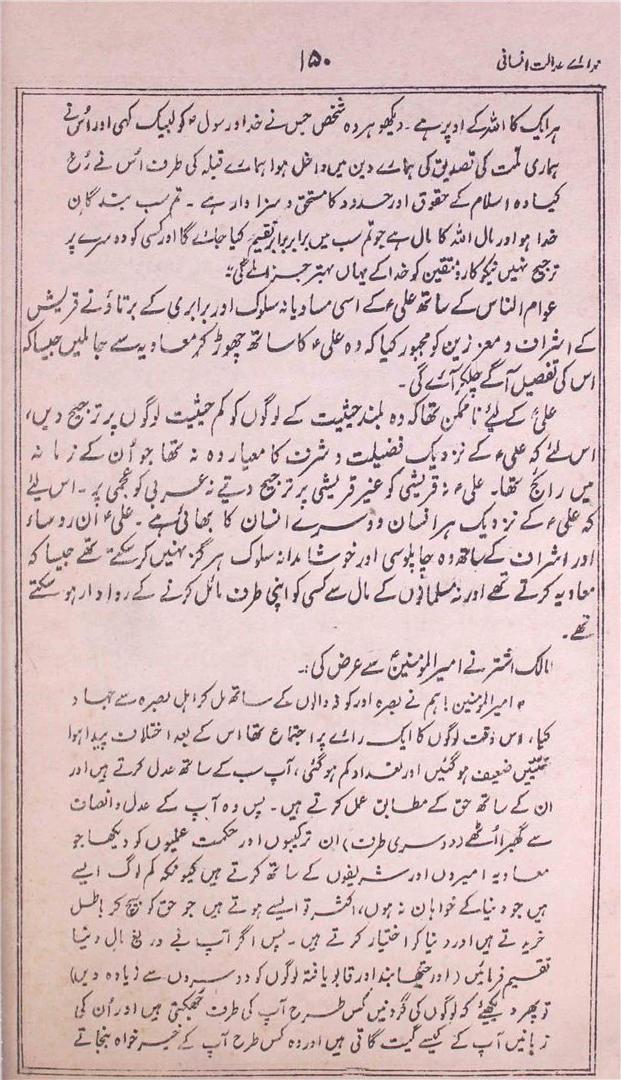 ندائے عدالت انسانی
۱۵۰
ہر ایک کا اللہ کے اوپر ہے۔ دیکھو ہر وہ شخص جس نے خدا و رسولؐ کو لبیک کہی اور اُس نے
ہماری ملت کی تصدیق کی ہمارے دین میں داخل ہوا ہمارے قبلہ کی طرف اُس نے رُخ
کیا وہ اسلام کے حقوق اور حدود کا مستحق و سزاوار ہے۔ تم سب بندگانِ
خدا ہو اور مال اللہ کا مال ہے جو تم سب میں برابر برابر تقسیم کیا جائے گا اور کسی کو دوسرے پر
ترجیح نہیں نیکوکار و متقین کو خدا کے یہاں بہتر جزا ملے گی"
عوام الناس کے ساتھ علیؑ کے اسی مساویانہ سلوک اور برابری کے برتاؤ نے قریش
کے اشراف و معززین کو مجبور کیا کہ وہ علیؑ کا ساتھ چھوڑ کر معاویہ سے جا ملیں جیسا کہ
اس کی تفصیل آگے چلکر آئے گی۔
علیؑ کے لئے ناممکن تھا کہ وہ بلند حیثیت کے لوگوں کو کم حیثیت لوگوں پر ترجیح دیں،
اس لئے کہ علیؑ کے نزدیک فضیلت و شرف کا معیار وہ نہ تھا جو اُن کے زمانہ
میں رائج تھا۔ علیؑ نہ قریشی کو غیر قریشی پر ترجیح دیتے نہ عربی کو عجمی پر۔ اس لئے
کہ علیؑ کے نزدیک ہر انسان دوسرے انسان کا بھائی ہے۔ علیؑ ان روساء
اور اشراف کے ساتھ وہ چاپلوسی اور خوشامدانہ سلوک ہرگز نہیں کر سکتے تھے جیسا کہ
معاویہ کرتے تھے اور نہ مسلمانوں کے مال سے کسی کو اپنی طرف مائل کرنے کے روادار ہو سکتے
تھے۔
مالک اشتر نے امیرالمومنینؑ سے عرض کی:۔
"امیرالمومنین! ہم نے بصرہ اور کوفہ والوں کے ساتھ مل کر اہل بصرہ سے جہاد
کیا، اس وقت لوگوں کا ایک رائے پر اجتماع تھا اس کے بعد اختلاف پیدا ہوا
نیتیں ضعیف ہو گئیں اور تعداد کم ہو گئی، آپ سب کے ساتھ عدل کرتے ہیں اور
ان کے ساتھ حق کے مطابق عمل کرتے ہیں۔ پس وہ آپ کے عدل و انصاف
سے گھبرا اُٹھے (دوسری طرف) ان ترکیبوں اور حکمت عملیوں کو دیکھا جو
معاویہ امیروں اور شریفوں کے ساتھ کرتے ہیں کیونکہ کم لوگ ایسے
ہیں جو دنیا کے خواہاں نہ ہوں، اکثر تو ایسے ہوتے ہیں جو حق کو بیچ کر باطل
خریدتے ہیں اور دنیا کو اختیار کرتے ہیں۔ پس اگر آپ بے دریغ مال دنیا
تقسیم فرمائیں (اور جتھا بند اور قابو یافتہ لوگوں کو دوسروں سے زیادہ دیں)
تو پھر دیکھئے کہ لوگوں کی گردنیں کس طرح آپ کی طرف جھکتی ہیں اور اُن کی
زبانیں آپ کے کیسے گیت گاتی ہیں اور وہ کس طرح آپ کے خیر خواہ بنجاتے